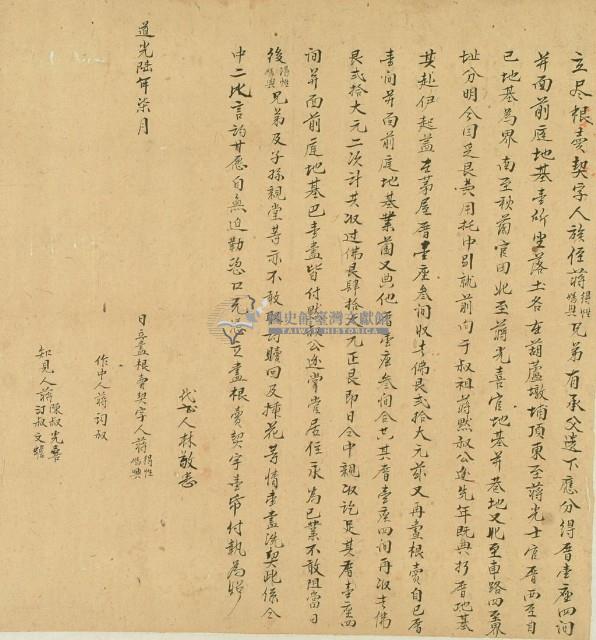 立尽根賣契字人族侄蔣得性媽興兄弟有承父遺下應分得厝壹座四间
并面前庭地基壹所坐落土名在葫蘆墩埔頂東至蔣光士官厝西至自
己地基為界南至秋蘭官田北至蔣光喜官地基并巷地又北至車路四至界
址分明今因乏艮費用托中引就前向于叔祖蔣黙叔公迯先年既典折厝地基
其起伊起蓋在茅屋厝壹座叁间收去佛艮弍拾大元茲又再盡根賣自己厝
壹间并面前庭地基業蘭又典他厝壹座叁间合共其厝壹座四间再収去佛
艮弍拾大元二次計共収过佛艮肆拾大元正艮即日仝中親収訖足其厝壹座四
间并面前庭地基巴壹盡皆付黙叔公迯掌管居住永為己業不敢阻當日
後得性媽興兄弟及子孫親堂等亦不敢言找贖回及揷花等情壹盡洗契此係仝
中二比言約甘愿自無迫勒恐口无凴立盡根賣契字壹帋付執為炤
代書人林敬志
日立盡根賣契字人蔣得性媽興
作中人蔣詞叔
知見人蔣陳叔光喜汀叔文騫
道光陸年柒月
國史館臺灣文獻館
TAIWAN HISTORICA